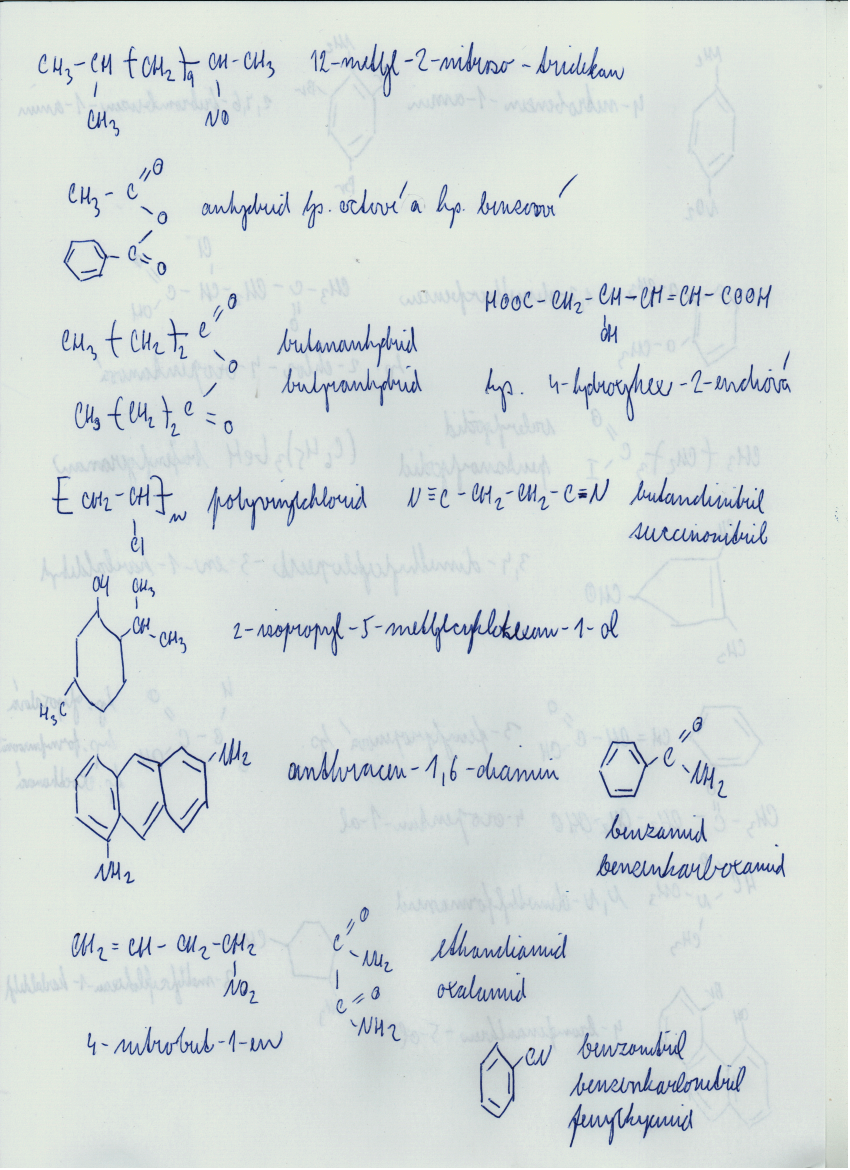 CH3-CH-(CH2)9-CH-CH3 12-methyl-2-nitroso-tridekan
CH3 NO
CH3-C=O
O
C=O
anhydrid kys. octové a kys. benzoové
HOOC-CH2-CH-CH=CH-COOH
OH
kys. 4-hydroxyhex-2-endiová
CH3-(CH2)2-C=O
O
CH3-(CH2)2-C=O
butananhydrid
butyranhydrid
[CH2-CH]n polyvinylchlorid
Cl
N≡C-CH2-CH2-C≡N butandinitril
succinonitril
OH CH3
CH-CH3
H3C
2-isopropyl-5-methylcyklohexan-1-ol
NH2
NH2
anthracen-1,6-diamin
C=O
NH2
benzamid
benzenkarboxamid
CH2=CH-CH2-CH2
NO2
4-nitrobut-1-en
C=O
NH2
C=O
NH2
ethandiamid
oxalamid
CN benzonitril
benzenkarbonitril
fenylkyanid